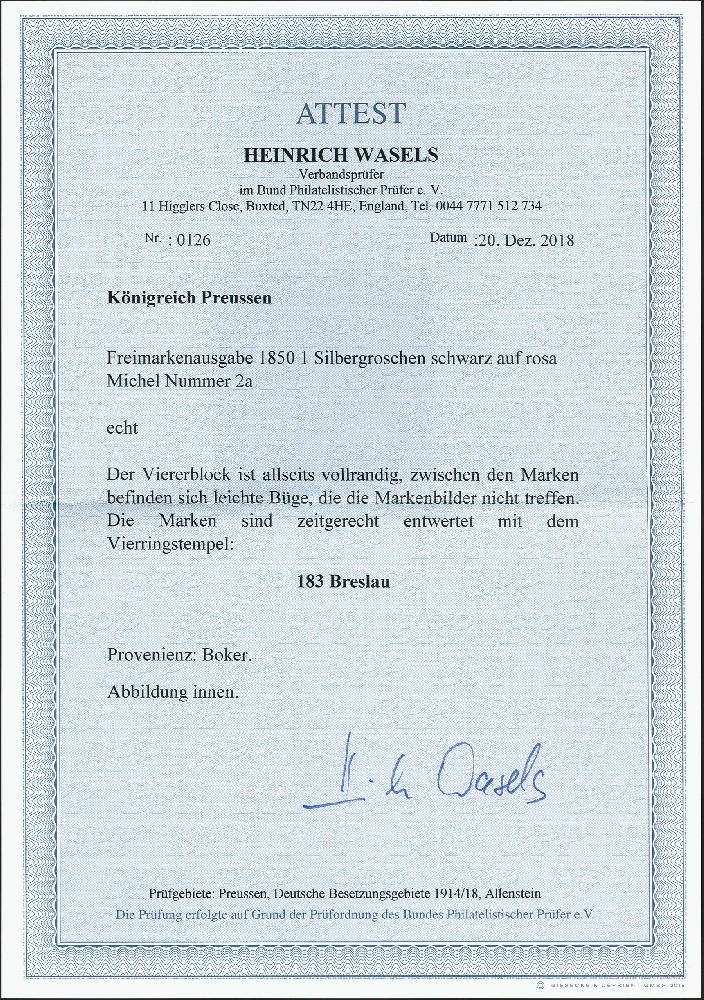 ATTEST
HEINRICH WASELS
Verbandsprüfer
im Bund Philatelistischer Prüfer e. V.
11 Higglers Close, Buxted, TN22 4HE, England, Tel. 0044 7771 512 734
Nr. : 0126 Datum :20. Dez. 2018
Königreich Preussen
Freimarkenausgabe 1850 1 Silbergroschen schwarz auf rosa
Michel Nummer 2a
echt
Der Viererblock ist allseits vollrandig, zwischen den Marken
befinden sich leichte Büge, die die Markenbilder nicht treffen.
Die Marken sind zeitgerecht entwertet mit dem
Vierringstempel:
183 Breslau
Provenienz: Boker.
Abbildung innen.
Wasels
Prüfgebiete: Preussen, Deutsche Besetzungsgebiete 1914/18, Allenstein
Die Prüfung erfolgte auf Grund der Prüfordnung des Bundes Philatelistischer Prüfer e.V.
© GIESECKE & DEVRIENT GMBH